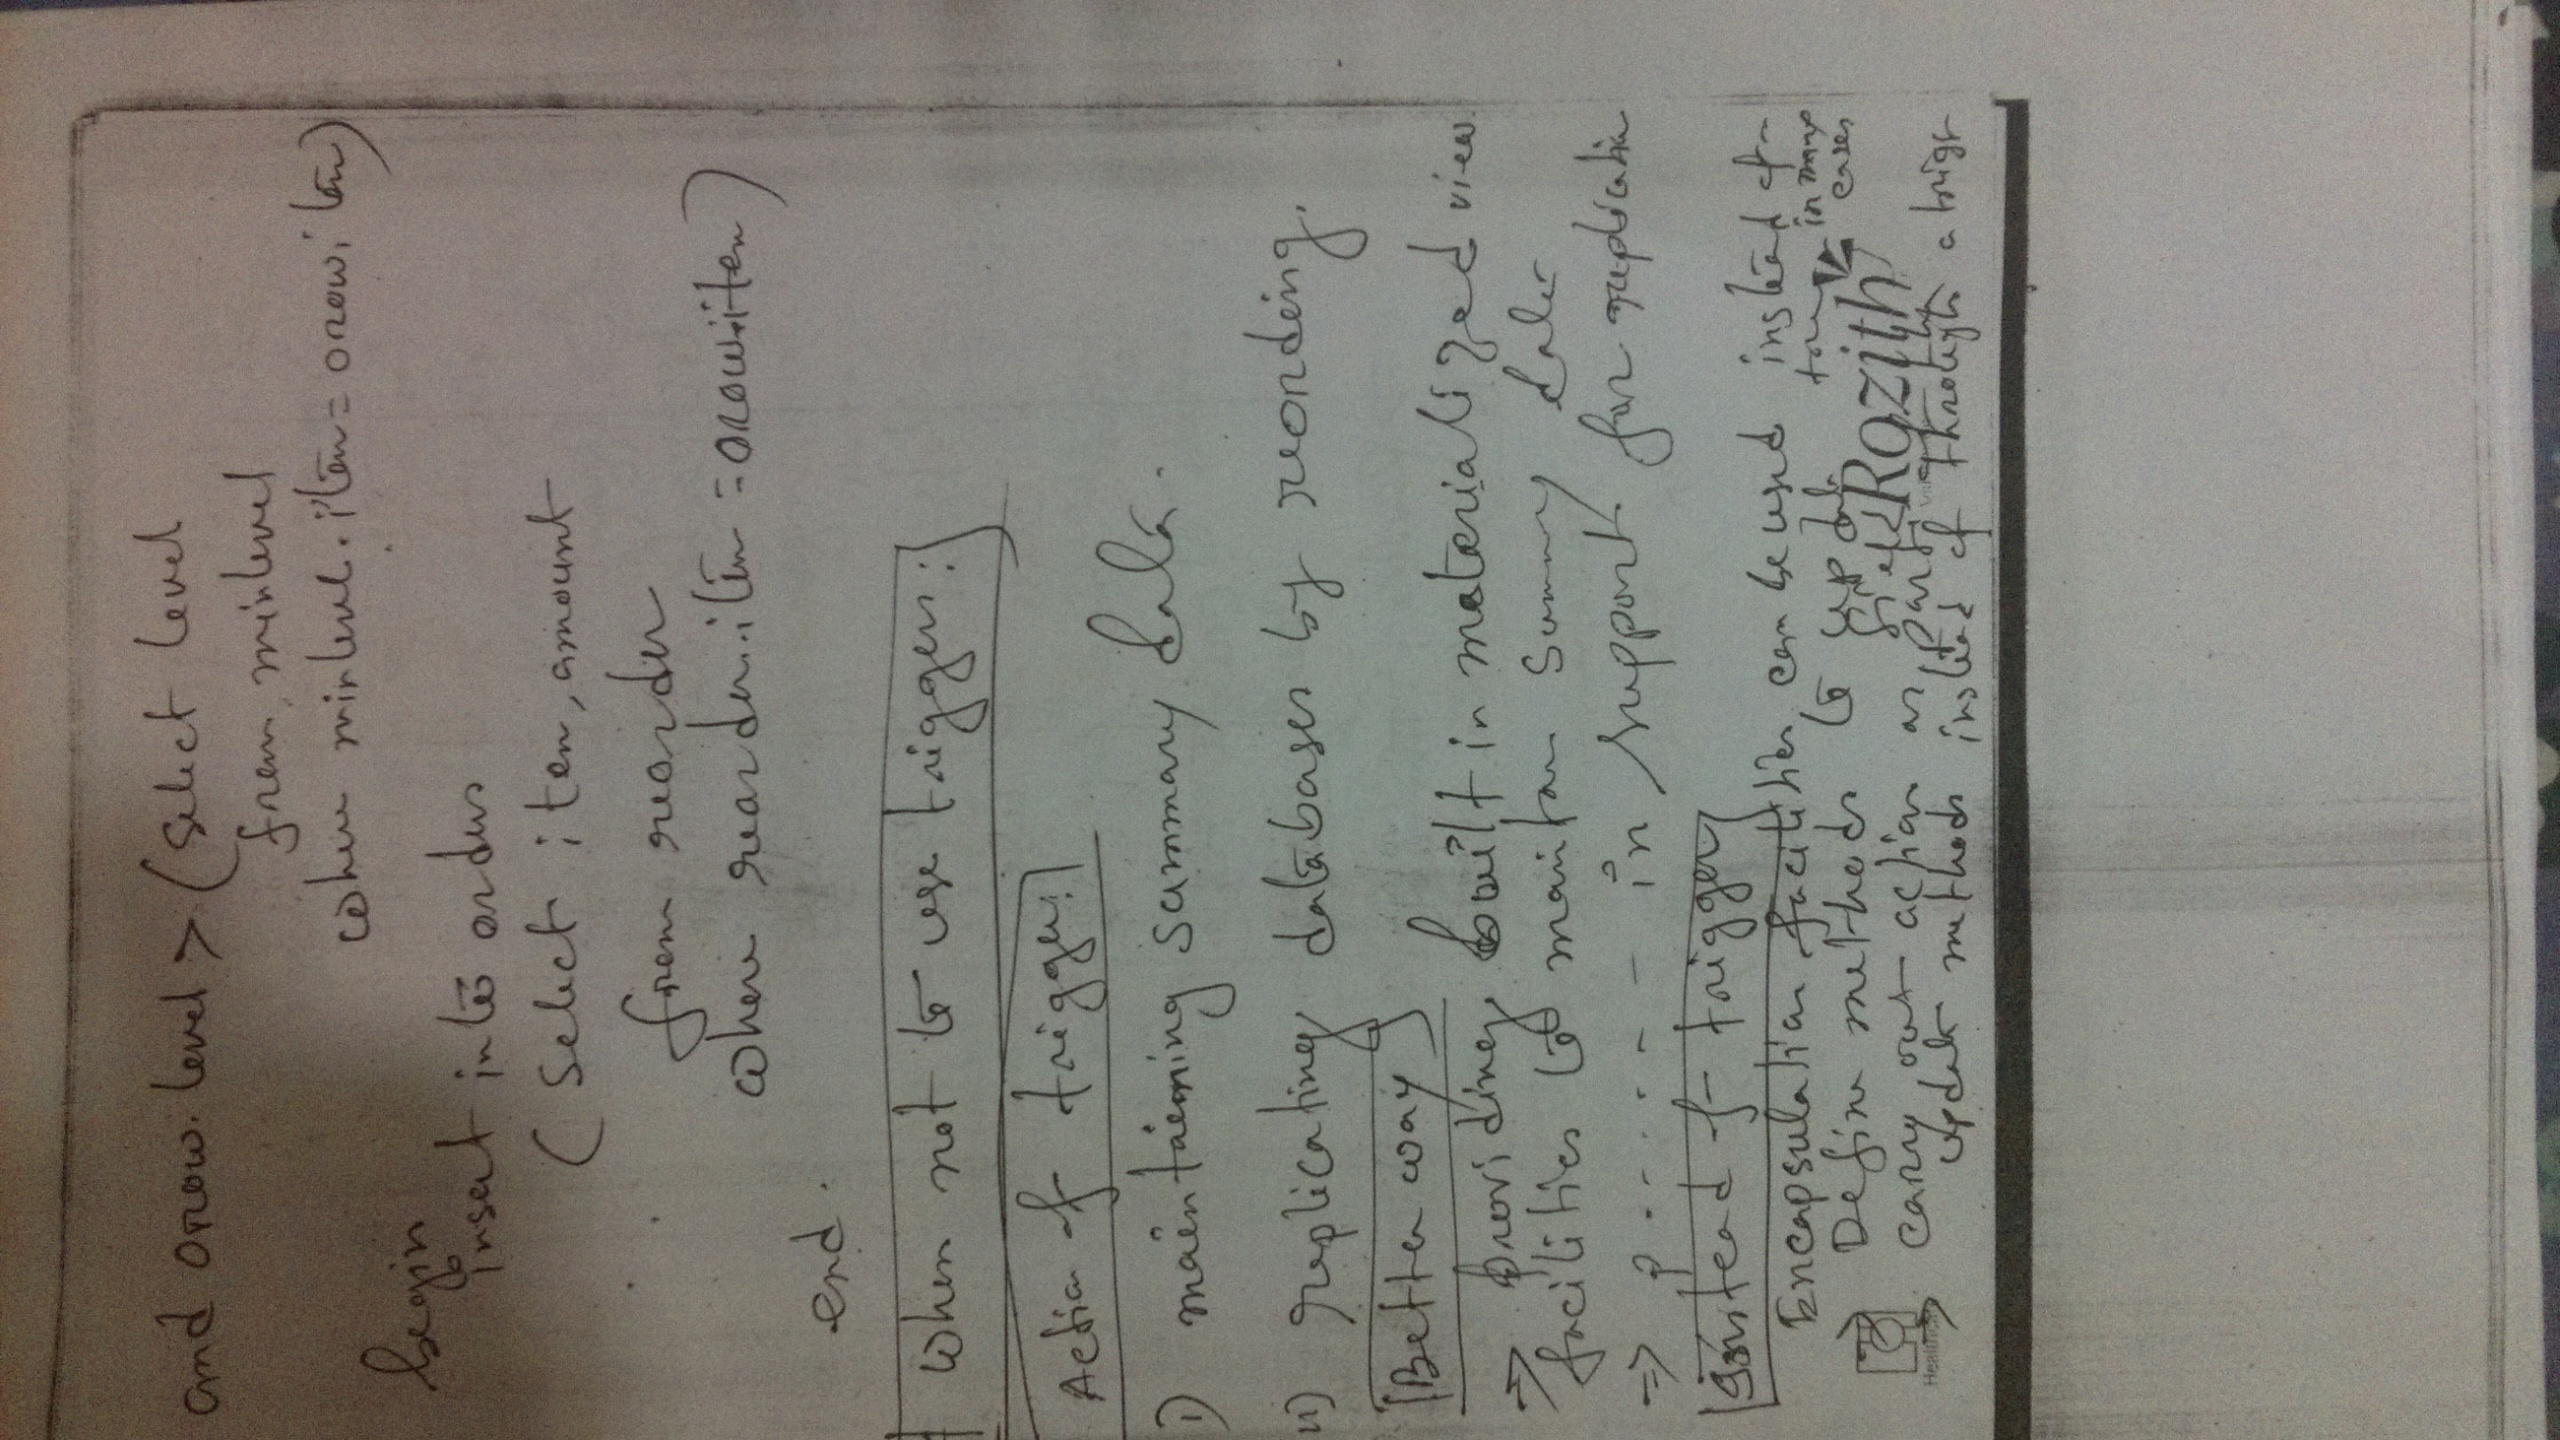 and orow.level > (select level
from minlevel
where minlevel.item = orow.item)
begin
insert into orders
(select item, amount
from reorder
where reorder.item = orow.item)
end.
when not to use trigger:
Action of trigger:
i) maintaining summary data.
ii) replicating databases by recording.
Better way
⇒ Providing built in materialized view
facilities to maintain summary data
⇒ P - - - - - in support for replication
Instead of trigger
Encapsulation facilities can be used instead of
in many
cases
→ Define methods to update
Rozith
carry out action as Part of
→ update methods instead of through a trigger